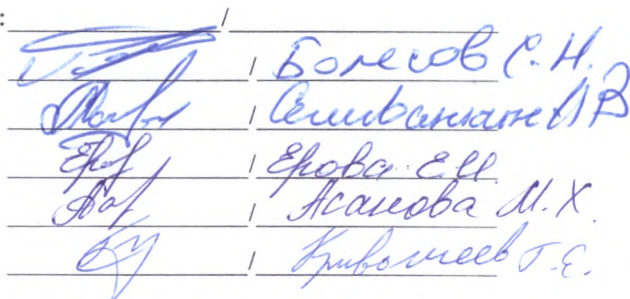 : /
/ Болесов С.Н.
/ Селиванкин А В
/ Ерова Е.И.
/ Асанова М.Х.
/ Кривошеев Г.Е.